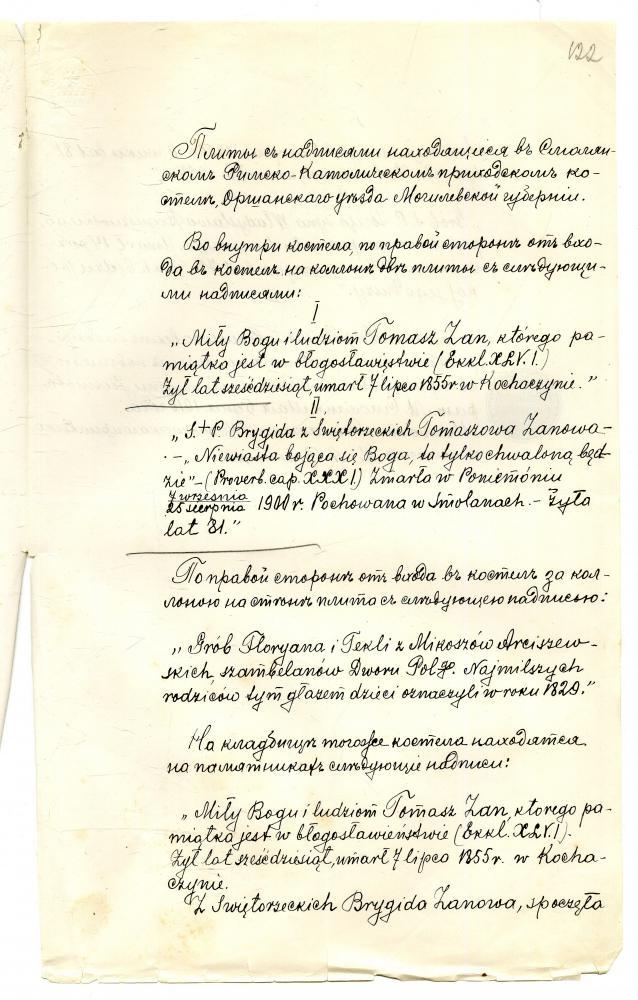 122
Плиты съ надписями находящіеся въ Смолян-
скомъ Римско-Католическомъ приходскомъ ко-
стелѣ, Оршанскаго уѣзда Могилевской губерніи.
Во внутри костела, по правой сторонѣ отъ вхо-
да въ костелъ на коллонѣ двѣ плиты съ слѣдующи-
ми надписями:
I
„Miły Bogu i ludziom Tomasz Zan, którego pa-
miątka jest w błogosławięstwie (Ekkl. XLV. I.)
Żył lat sześćdziesiąt, umarł 7 lipca 1855 r w Kochaczynie."
II.
„S.+P. Brygida z Świętorzeckich Tomaszowa Zanowa-
.-„Niewiasta bojąca się Boga, ta tylko chwaloną będ-
zie"-(Proverb. cap. XXXI) Zmarła w Poniemóniu
7 września
25 sierpnia 1900 r. Pochowana w Smolanach.- Żyła
lat 81."
По правой сторонѣ отъ входа въ костелъ за кол-
лоною на стѣнѣ плита съ слѣдующею надписью:
„Grób Floryana i Tekli z Mikoszów Arciszew-
skich, szambelanów Dworu Polgo. Najmilszych
rodziców tym głazem dzieci oznaczyli w roku 1829."
На кладбищѣ тогоже костела находятся
на памятникахъ слѣдующіе надписи:
„Miły Bogu i ludziom Tomasz Zan, ktorego pa-
miątka jest w błogosławieństwie (Ekkl. XLV. I).
Żył lat sześćdziesiąt, umarł 7 lipca 1855 r. w Kocha-
czynie.
Z Swiętorzeckich Brygida Zanowa, spoczęła